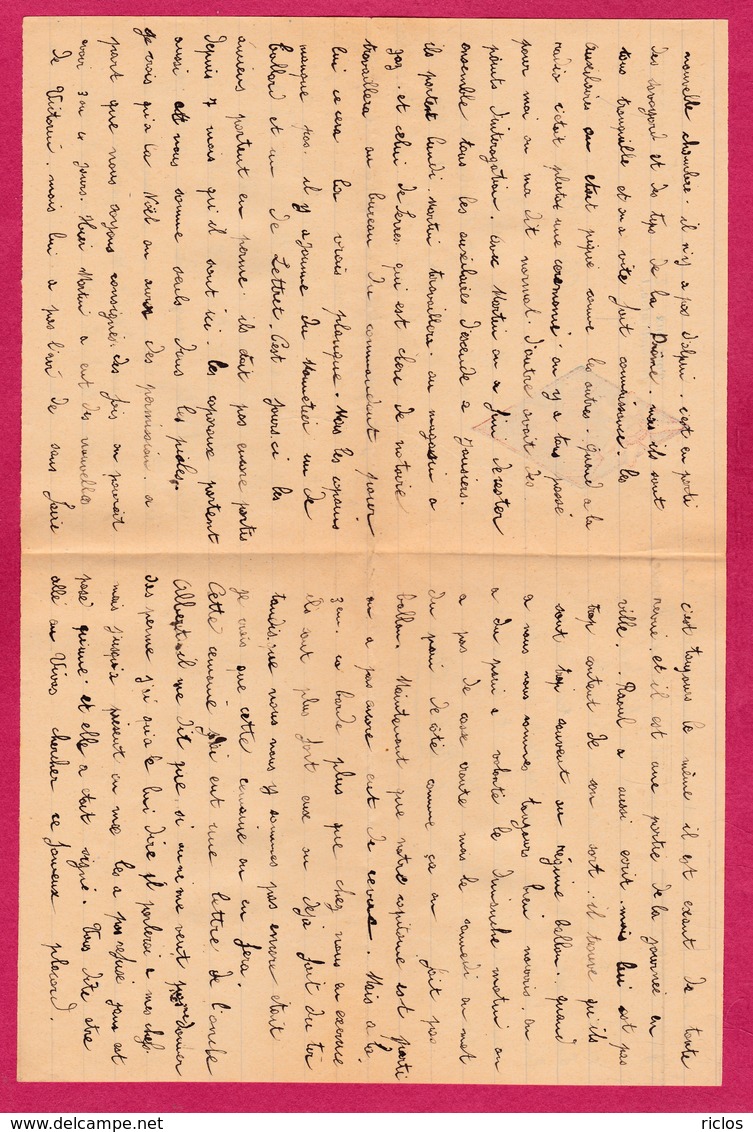 nouvelle chambre. il n'y a pas d'alpin. c'est en parti
des savoyard et des typs de la Drôme. mais ils sont
tous tranquille et on a vite fait connaissance. les
auxiliaires on etait piqué comme les autres. Quand a la
radio c'était plutot une ceremonie on y a tous passé
pour moi on ma dit normal. d'autre avait des
points d'interogation. avec Martin on a fini de rester
ensemble tous les auxiliaires descende a Jausiers.
ils partent lundi. Martin travaillera au magasin a
gaz. et celui de Serres qui est clerc de notaire
travaillera au bureau du commandant pour
lui ce cera la vrais planque. Nous les copains
manque pas. il y a jeanne du Monetier un de
ballard et un de Lettret. C'est jours ci les
anciens partent en perme. ils était pas encore partis
depuis 7 mais qu'il sont ici. les caporaux partent
aussi et nous somme seuls dans les pioles.
Je crois qu'a la Noël on aura des permission. a
part que nous soyons consignes. des fois on pourait
avoir 3 ou 4 jours. Hier Martin a eut des nouvelles
de Victorin. mais lui a pas l'air de sans faire
c'est toujours le même il est exant de tente
revue. et il est une partie de la journée en
ville. Raoul a aussi ecrit. mais lui est pas
trop content de son sort. il trouve qu'ils
sont trop souvent au régime ballon. quand
a nous nous sommes toujours bien nourris. on
a du pain a volonté le dimanche matin on
a pas de casse croute mais le samedi on met
du pain de côté comme ça on fait pas
ballon. Maintenant que notre capitaine est parti
on a pas encore eut de revue. Mais a la
3em. ca barde plus que chez nous en exercice
ils sont plus fort eux on deja fait du tir
tandis que nous nous y sommes pas encore etait
je crois que cette cemaine on en fera.
Cette cemaine j'ai eut une lettre de l'oncle
Albert il me dit que si on ne me veut pas donner
des perme j'ai qu'a le lui dire il parlerai a mes chefs.
mais jusqu'a present on me les a pas refusé jans est
posé qu'une et elle a était signé. Vous dite etre
allé au Vivas chercher ce fameux placard.
riclos